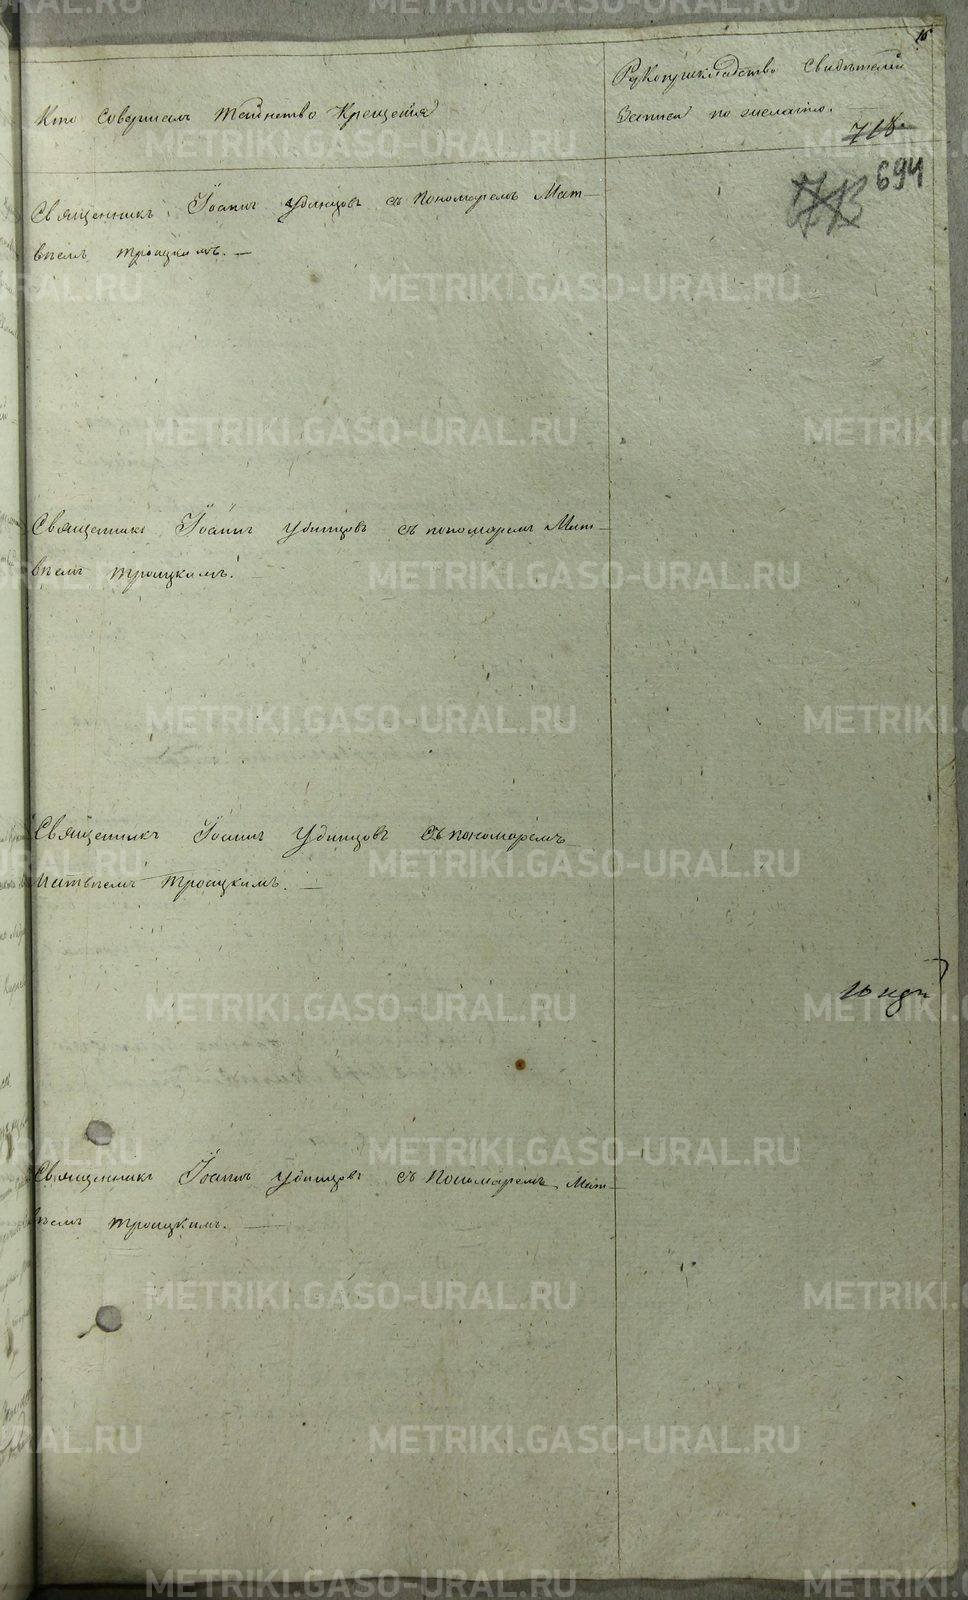 15
Кто совершалъ таинство Крещенія
Рукоприкладство Свидѣтелей
Записки по желанію.
718.
694
Священникъ Іоаннъ Удинцовъ съ пономаремъ Мат-
вѣемъ Троицкимъ.
Священникъ Іоаннъ Удинцовъ съ пономаремъ Мат-
вѣемъ Троицкимъ.
Священникъ Іоаннъ Удинцовъ съ пономаремъ
Матвѣемъ Троицкимъ.
Священникъ Іоаннъ Удинцовъ съ Пономаремъ Мат-
вѣемъ Троицкимъ.
METRIKI.GASO-URAL.RU